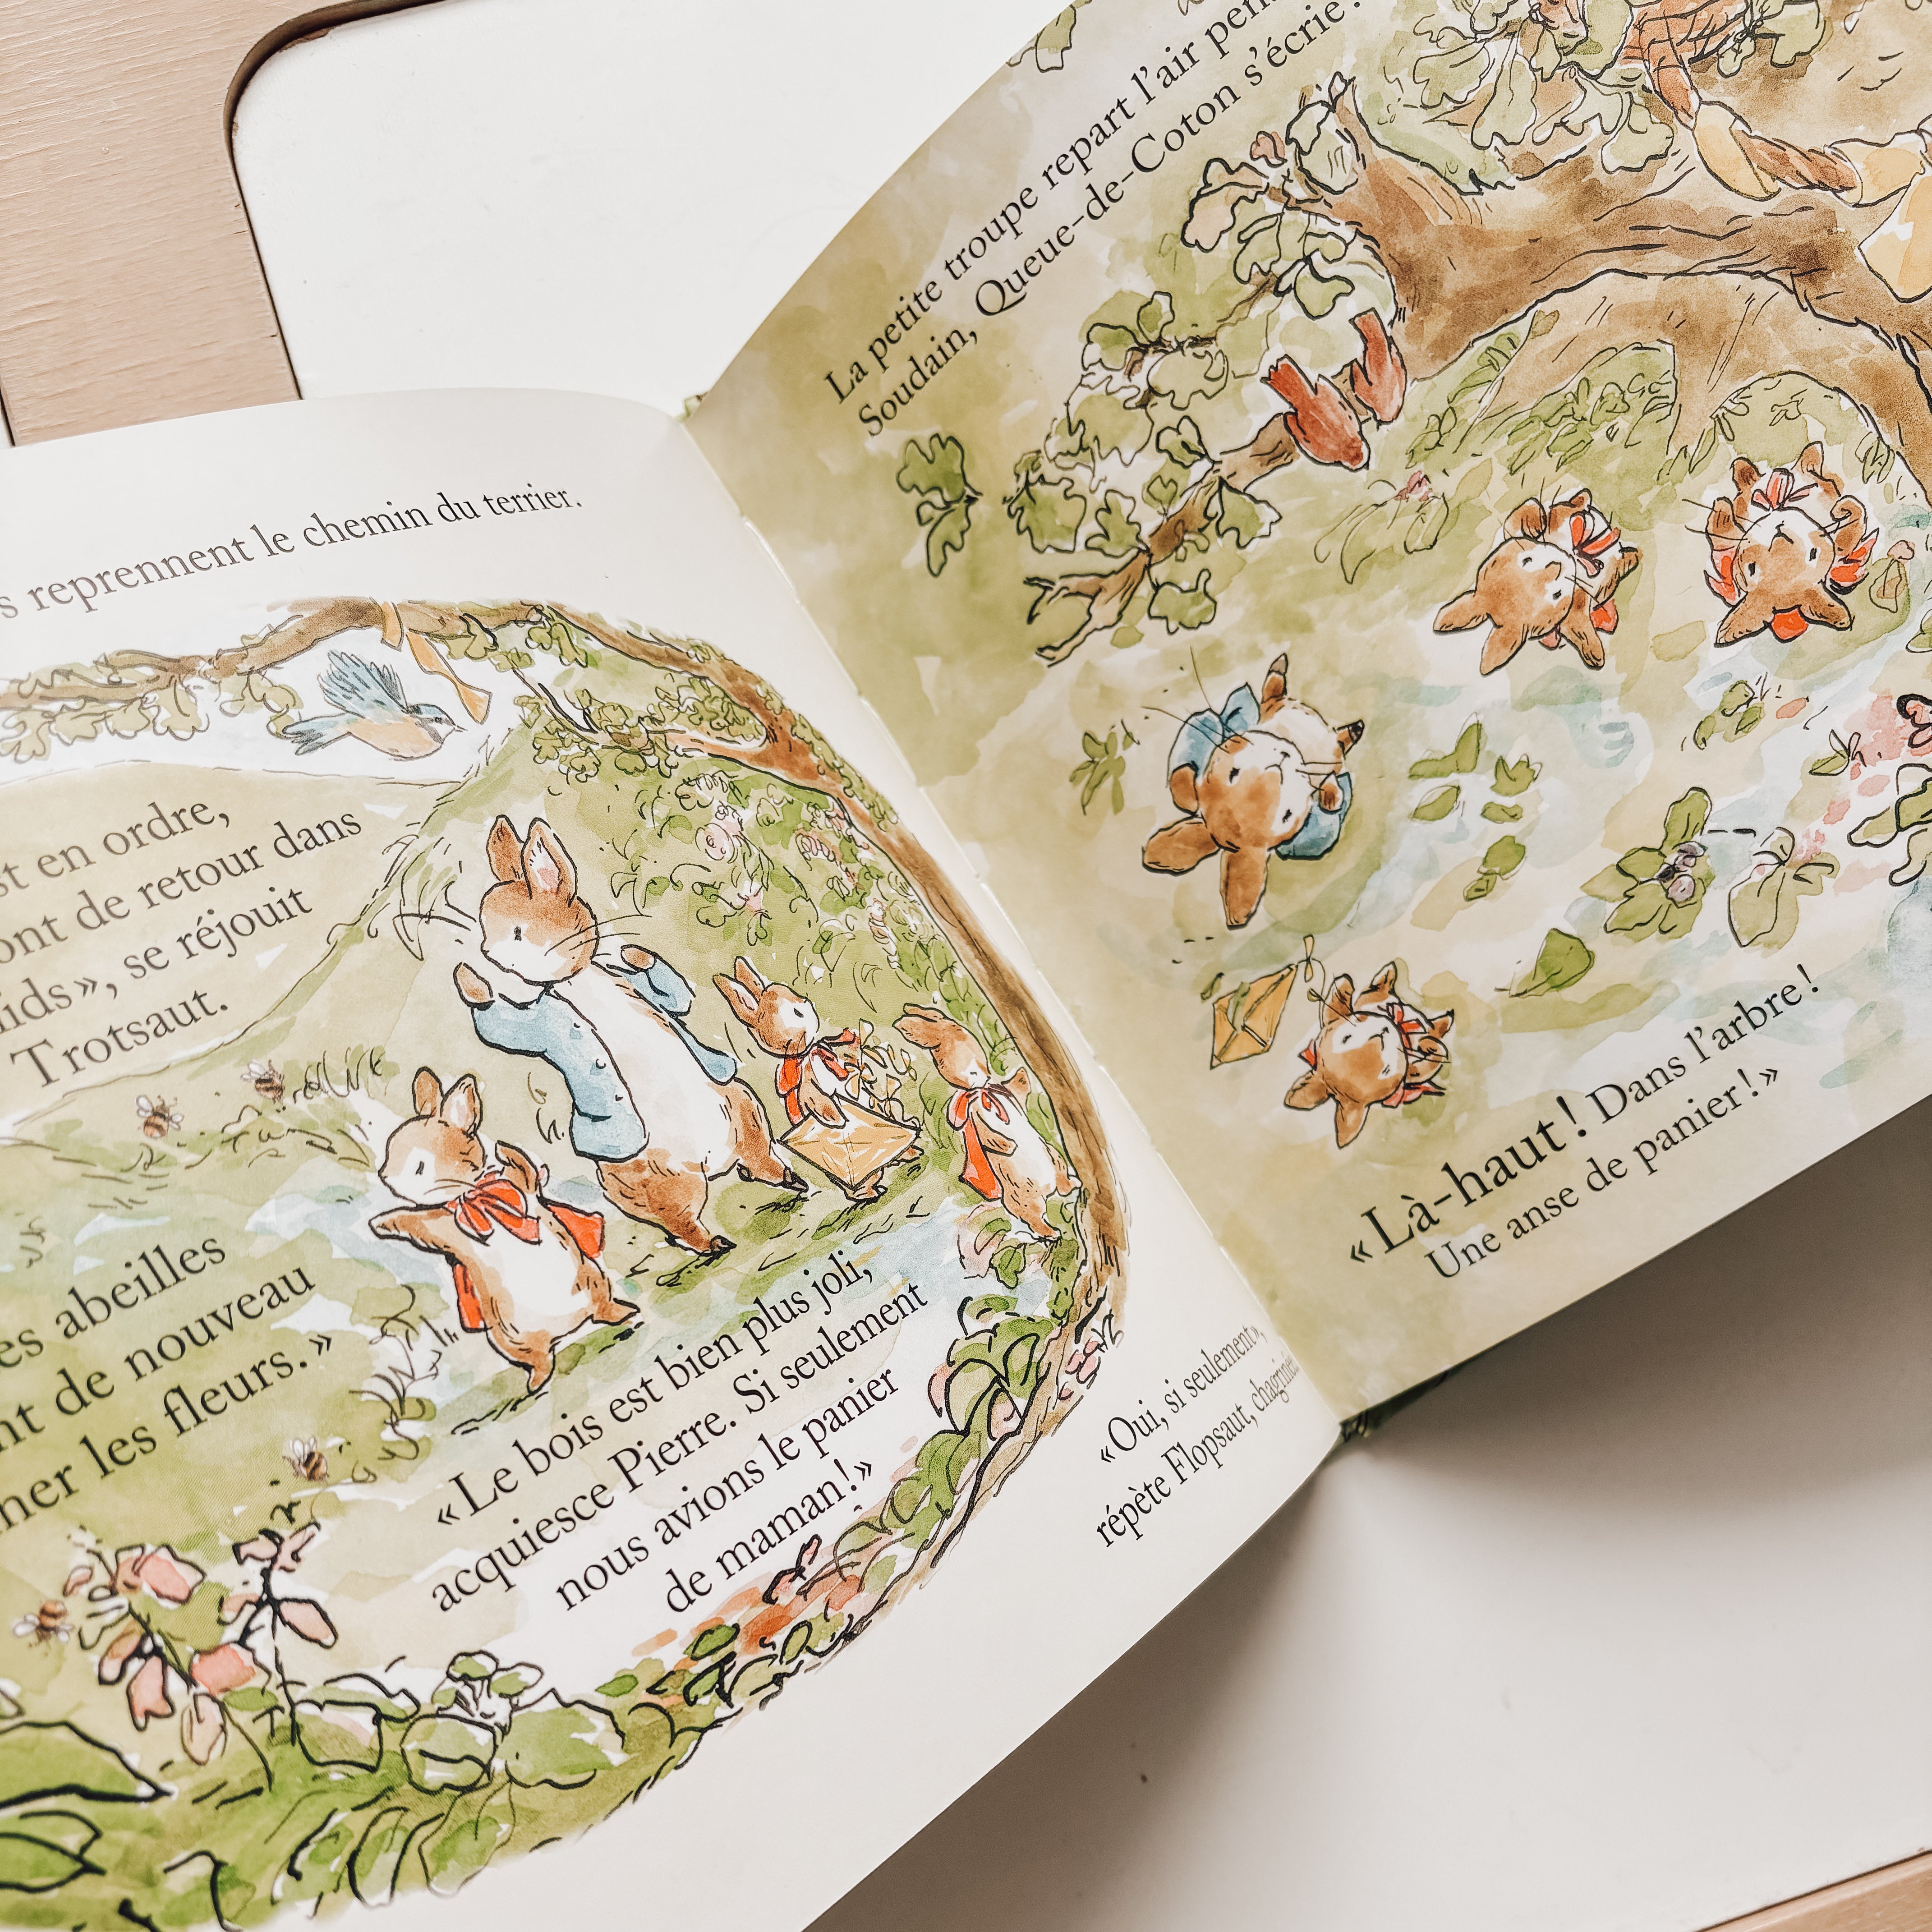 reprennent le chemin du terrier.
en ordre,
de retour dans
se réjouit
Trotsaut.
abeilles
de nouveau
les fleurs.»
«Le bois est bien plus joli,
acquiesce Pierre. Si seulement
nous avions le panier
de maman!»
«Oui, si seulement»,
répète Flopsaut,
La petite troupe repart l'air
Soudain, Queue-de-Coton s'écrie:
«Là-haut! Dans l'arbre!
Une anse de panier!»